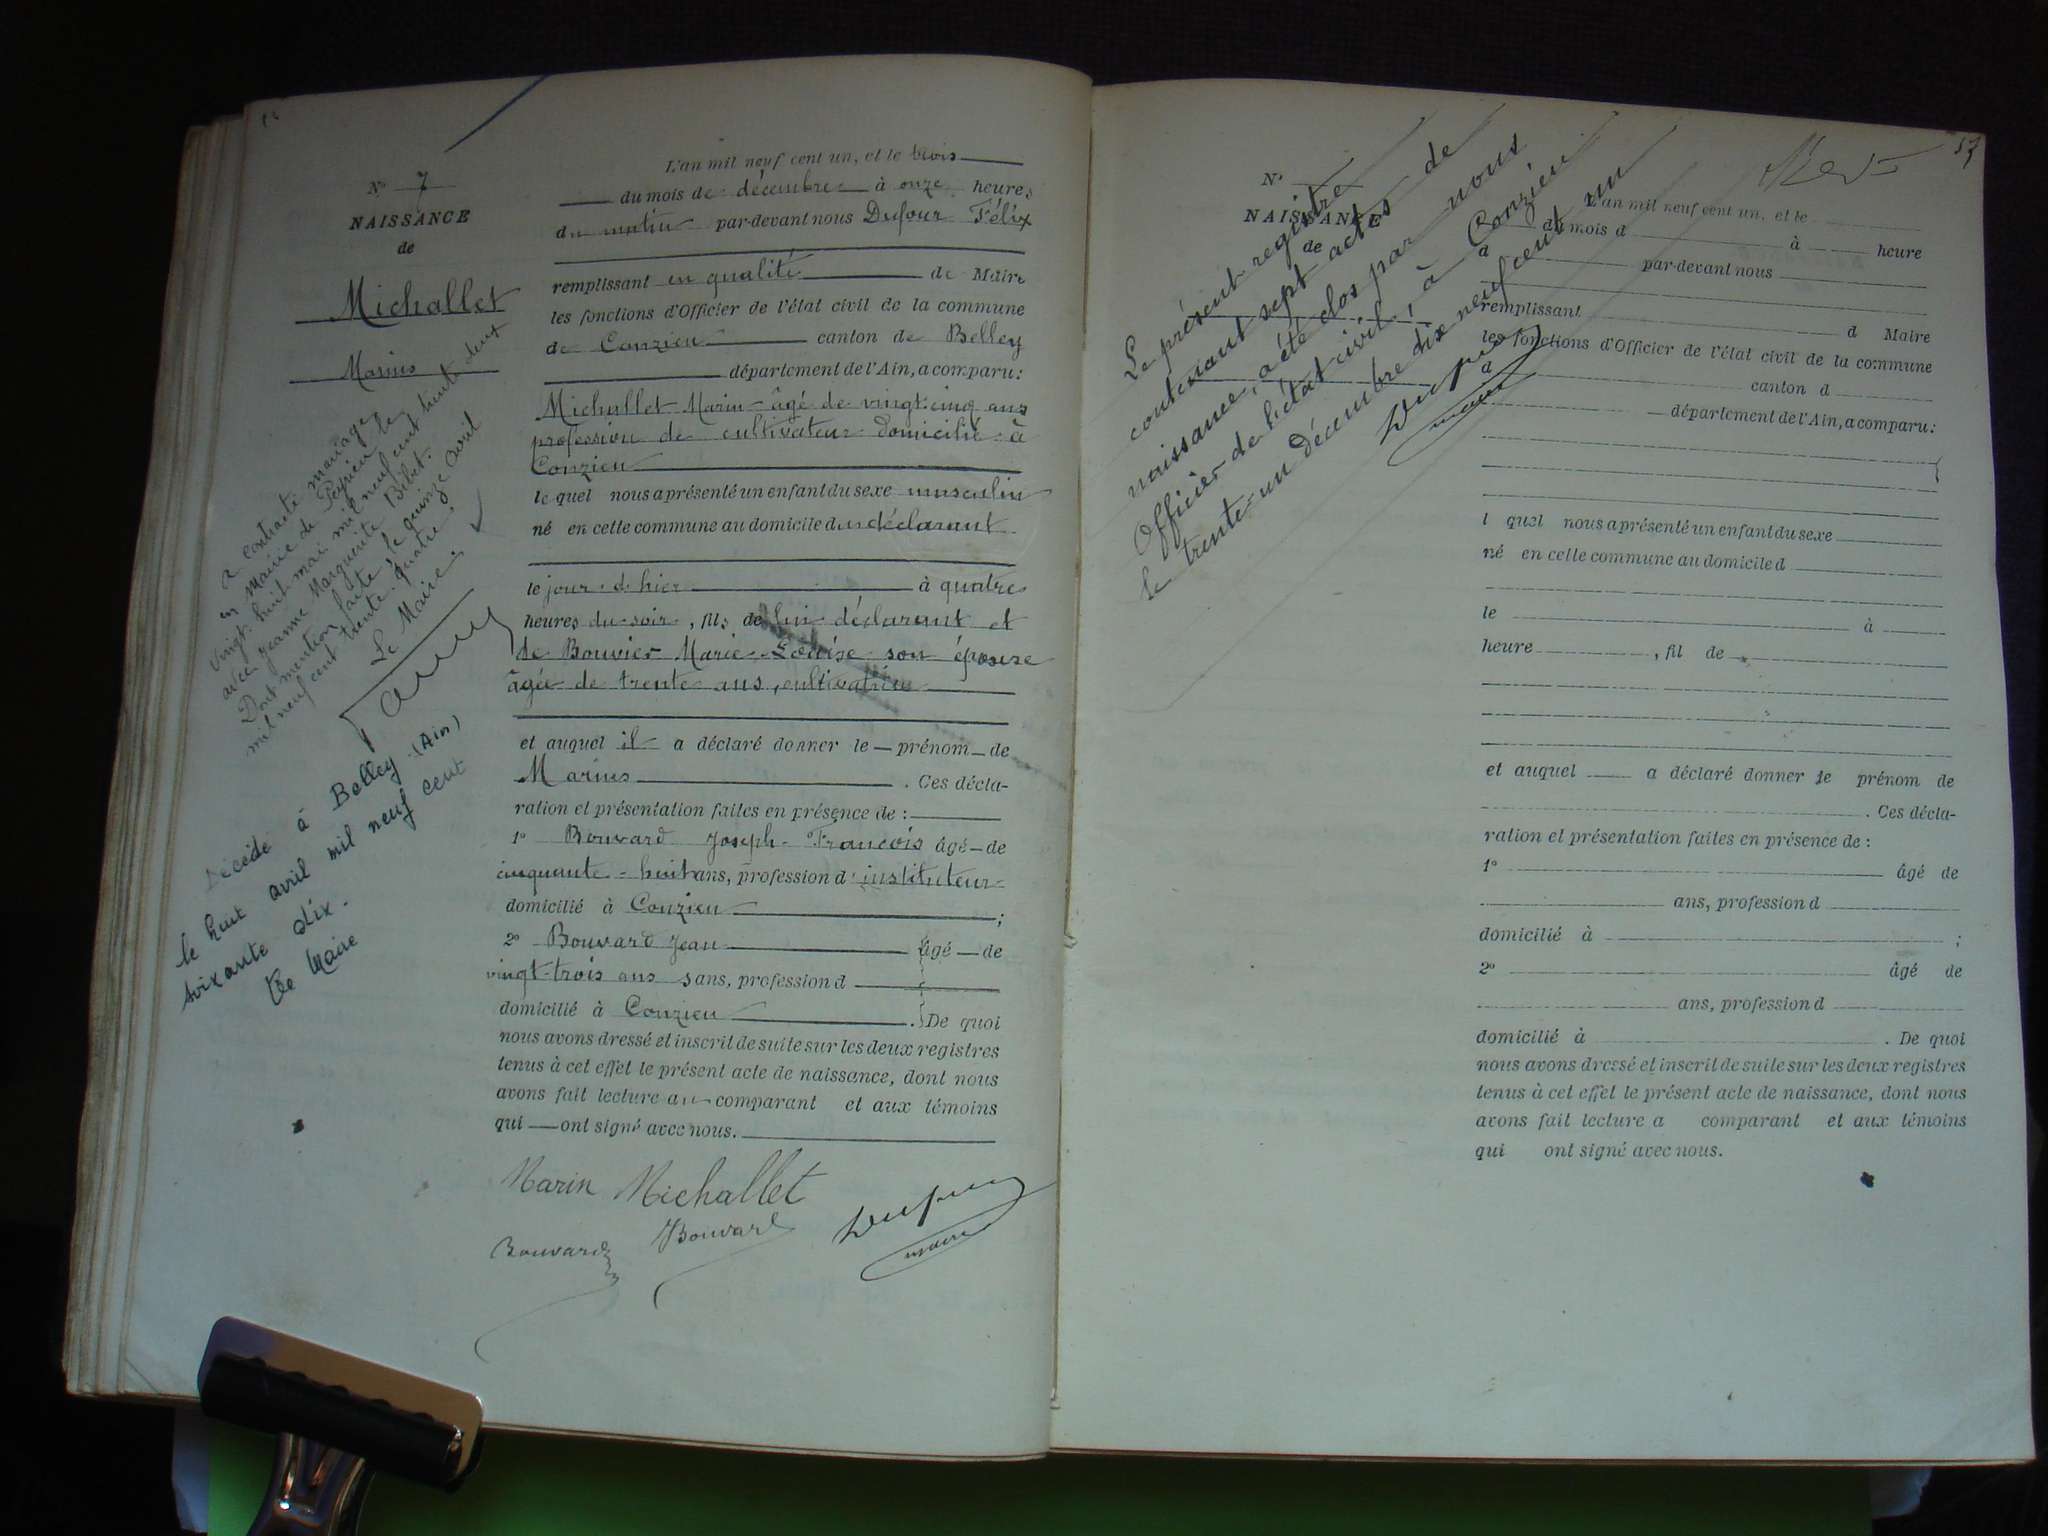 N° 7
NAISSANCE
de
Michallet
Marius
a contracté mariage
en Mairie de Peyrieu le
vingt-huit mai mil neuf cent trente deux
avec Jeanne Marguerite Bibet.
Dont mention faite le quinze avril
mil neuf cent trente-quatre.
Le Maire.
Décédé à Belley (Ain)
le huit avril mil neuf cent
soixante dix.
Le Maire
L'an mil neuf cent un, et le trois
du mois de décembre à onze heures
du matin par-devant nous Dufour Félix
remplissant en qualité de Maire
les fonctions d'Officier de l'état civil de la commune
de Conzieu canton de Belley
département de l'Ain, a comparu:
Michallet Marin âgé de vingt-cinq ans
profession de cultivateur domicilié à
Conzieu
lequel nous a présenté un enfant du sexe masculin
né en cette commune au domicile du déclarant
le jour d'hier à quatre
heures du soir, fils de lui déclarant et
de Bouvier Marie Louise son épouse
âgée de trente ans, cultivatrice
et auquel il a déclaré donner le prénom de
Marius. Ces décla-
ration et présentation faites en présence de :
1° Bouvard Joseph-François âgé de
cinquante-huit ans, profession d'instituteur
domicilié à Conzieu ;
2° Bouvard Jean âgé de
vingt-trois ans sans, profession d
domicilié à Conzieu. De quoi
nous avons dressé et inscrit de suite sur les deux registres
tenus à cet effet le présent acte de naissance, dont nous
avons fait lecture au comparant et aux témoins
qui ont signé avec nous.
Marin Michallet
Bouvard Bouvard
maire
17
N°
NAISSANCE
de
Le présent registre
contenant sept actes de
naissance, a été clos par nous
Officier de l'état civil, à Conzieu
le trente-un décembre dix neuf cent un
maire
L'an mil neuf cent un, et le
du mois d à heure
par-devant nous
remplissant d Maire
les fonctions d'Officier de l'état civil de la commune
d canton d
département de l'Ain, a comparu:
l quel nous a présenté un enfant du sexe
né en cette commune au domicile d
le à
heure , fil de
et auquel a déclaré donner le prénom de
. Ces décla-
ration et présentation faites en présence de :
1° âgé de
ans, profession d
domicilié à ;
2° âgé de
ans, profession d
domicilié à . De quoi
nous avons dressé et inscrit de suite sur les deux registres
tenus à cet effet le présent acte de naissance, dont nous
avons fait lecture a comparant et aux témoins
qui ont signé avec nous.